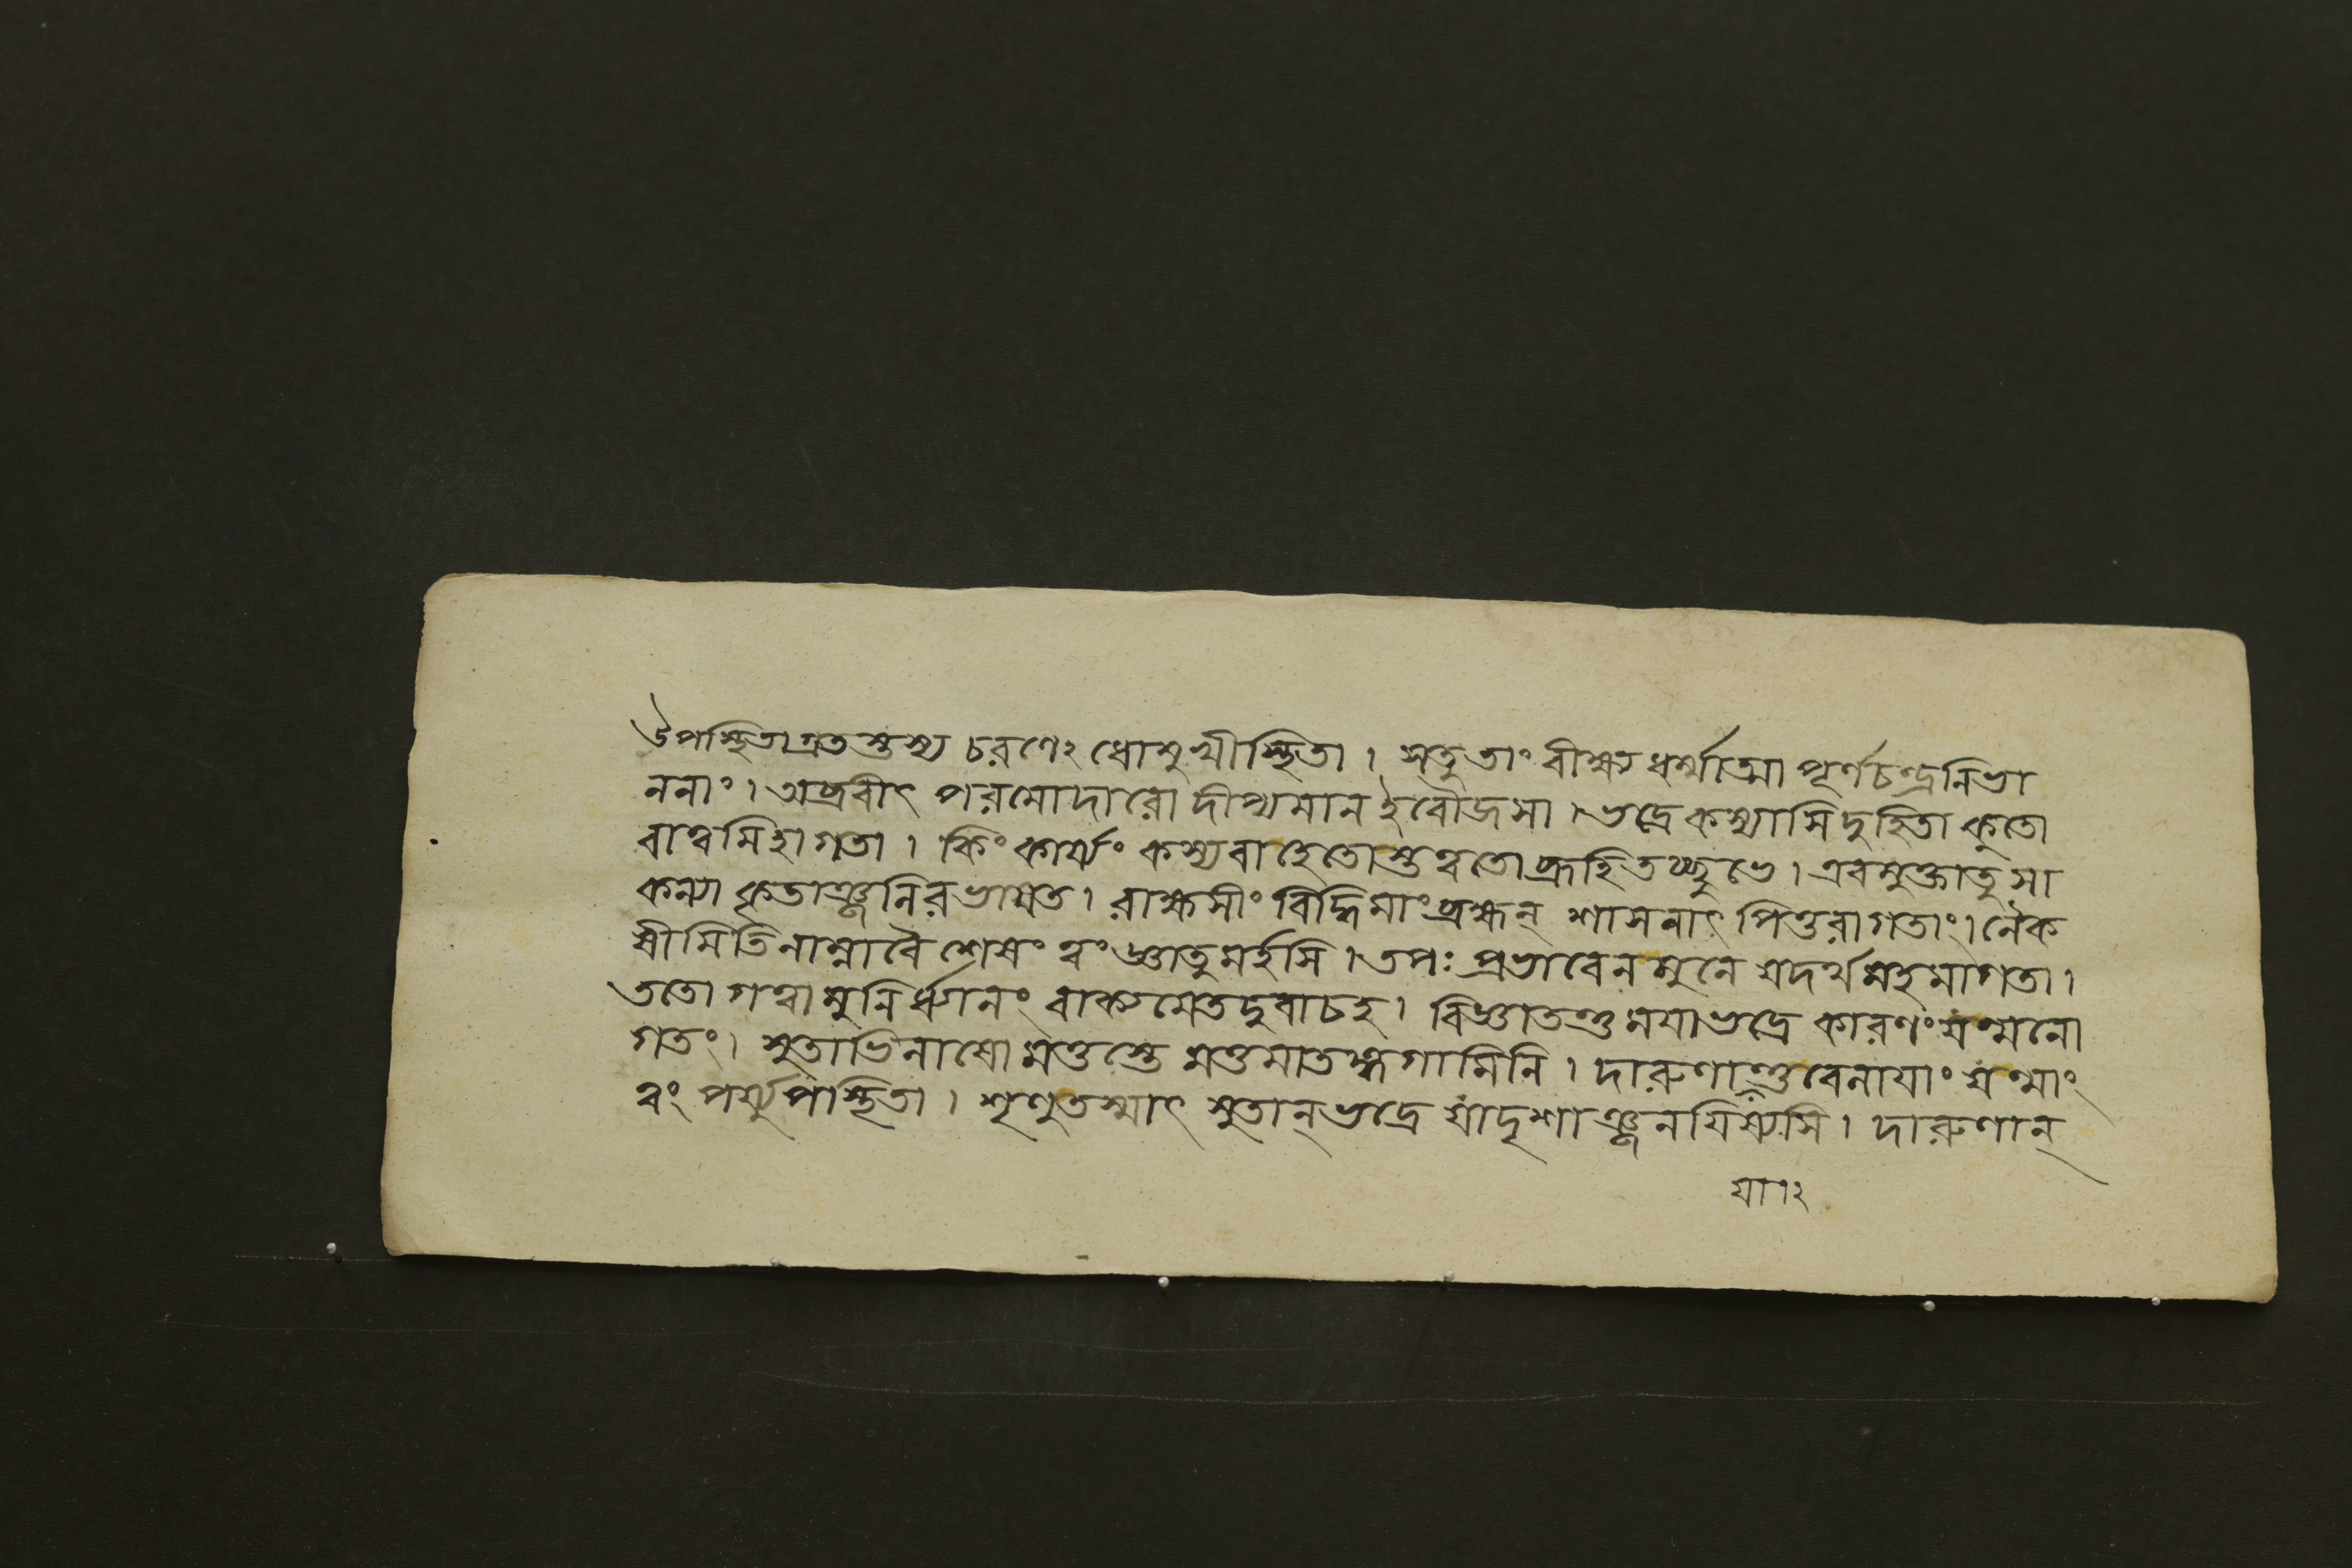 উপস্থিতাগ্রতস্তস্য চরণেঽধোমুখীস্থিতা। সতুতাং বীক্ষ্য ধর্ম্মাত্মা পূর্ণচন্দ্রনিভা
ননাং। অব্রবীৎ পরমোদারো দীপ্যমান ইবৌজসা। ভদ্রে কস্যাসি দুহিতা কুতো
বাত্বমিহাগতা। কিং কার্য্যং কস্যবাহেতোস্তত্বতো ব্রূহিতচ্ছুভে। এবমুক্তাতু সা
কন্যা কৃতাঞ্জলিরভাষত। রাক্ষসীং বিদ্ধিমাং ব্রহ্মন্ শাসনাৎ পিতুরাগতাং। নৈক
ষীমিতিনাম্নাবৈ শেষং ত্বং জ্ঞাতুমর্হসি। তপঃ প্রভাবেন মুনে যদর্থমহমাগতা।
ততো গত্বা মুনির্ধ্যানং বাক্যমেতদুবাচহ। বিজ্ঞাতন্তু ময়াভদ্রে কারণং যন্মনো
গতং। সুতাভিলাষো মত্তস্তে মত্তমাতঙ্গগামিনি। দারুণায়ান্তুবেলায়াং যন্মাং
ত্বং পর্য্যুপস্থিতা। শৃণুতস্মাৎ সুতান্ ভদ্রে যাদৃশাঞ্জনয়িষ্যসি। দারুণান্
যা।২